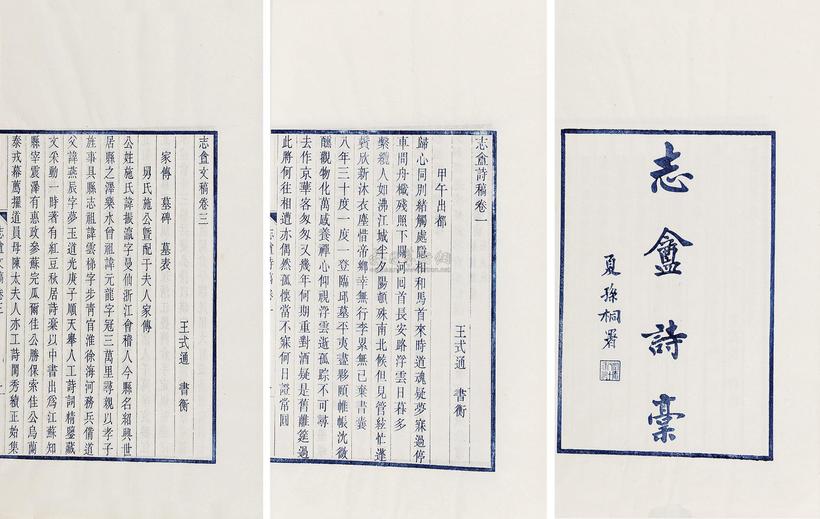 志盦詩稾
夏孫桐署
志盦詩稿卷一
王式通 書衡
甲午出都
歸心同別緒觸處隱相和馬首來時道魂疑夢寐過停
車問舟檝殘照下關河回首長安路浮雲日暮多
繫纜人如沸江城半夕陽頓殊南北候但見管絃忙蓬
鬢欣新沐衣塵惜帝鄉幸無行李累無已棄書囊
八年三十度一度一登臨邱墓平夷盡夥頤帷帳沈微
醺觀物化萬感養禪心仰視浮雲逝孤踪不可尋
去作京華客匆匆又幾年何期重對酒疑是舊離筵過
此將何往相遭亦偶然孤懷當不寐何日證常圓
志盦詩稿卷一
志盦文稿卷三
王式通 書衡
家傳 墓碑 墓表
舅氏施公暨配于夫人家傳
公姓施氏諱振瀛字曼仙浙江會稽人今縣名紹興世
居縣之澤樂水曾祖諱元龍字冠三萬里尋親以孝子
旌事具縣志祖諱雲梯字步青官淮徐海河務兵備道
父諱燕辰字夢玉道光庚子順天舉人工詩詞精鑒藏
文采動一時著有紅豆秋居詩稾以中書出為江蘇知
縣宰震澤有惠政參蘇完瓜爾佳公勝保索佳公烏蘭
泰戎幕薦擢道員母陳太夫人亦工詩閨秀續正始集
志盦文稿卷三